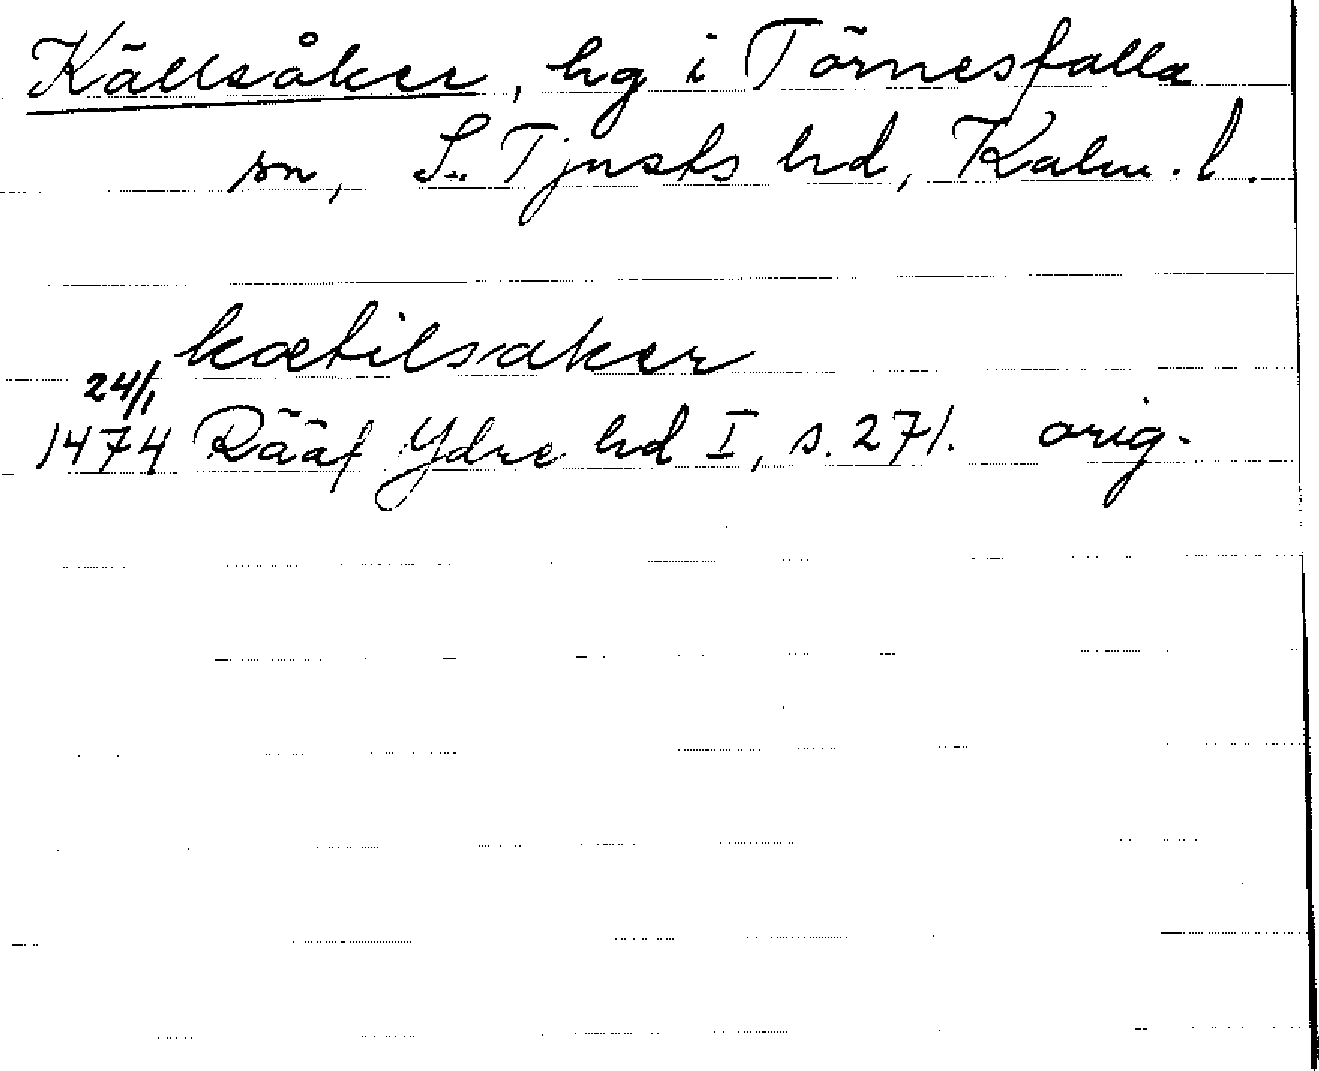 Källsåker, hg i Törnesfalla
sn, S. Tjusts hd, Kalm. l.
kætilsaker
24/1
1474 Rääf Ydre hd I, s. 271. orig.